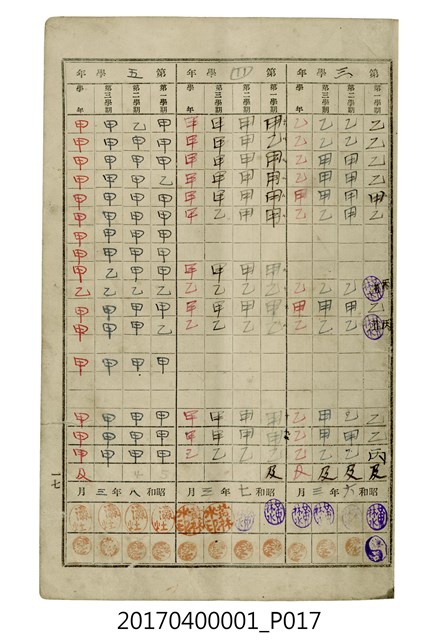 第三學年 第四學年 第五學年
第一學期 第二學期 第三學期 學年 第一學期 第二學期 第三學期 學年 第一學期 第二學期 第三學期 學年
乙 乙 乙 乙 甲 甲 甲 甲 甲 乙 甲 甲
乙 乙 乙 乙 乙 甲 甲 甲 甲 甲 甲 甲
乙 甲 甲 乙 甲 甲 甲 甲 甲 甲 甲 甲
乙 甲 乙 乙 甲 甲 甲 甲 乙 甲 甲 甲
甲 甲 乙 甲 甲 甲 甲 甲 甲 甲 甲 甲
乙 甲 乙 乙 甲 甲 乙 甲 甲 甲 甲 甲
甲 甲 甲 甲
甲 甲 甲 甲
甲 甲 甲 甲 甲 甲 乙 甲
丙 乙 乙 乙 乙 乙 乙 乙 乙 乙 乙 乙
乙 甲 甲 甲 甲 甲 乙 甲 甲 甲 甲 甲
丙 乙 乙 乙 乙 乙 乙 乙 乙 甲 甲 甲
甲 甲 甲 甲
乙 乙 甲 乙 甲 甲 甲 甲 甲 甲 甲 甲
乙 甲 甲 乙 甲 甲 甲 甲 甲 甲 甲 甲
丙 乙 乙 乙 乙 乙 乙 乙 甲 甲 甲 甲
及 及 及 及 及 及
昭和六年三月 昭和七年三月 昭和八年三月
一七
20170400001_P017